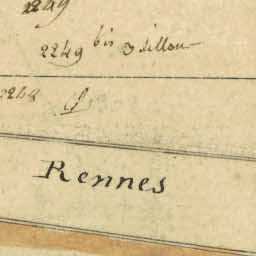 2249
2249 bis 3 sillon
2248
Rennes